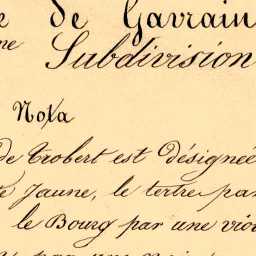 de Gavrain
Subdivision
Nota
de Trobert est désignée
Jaune, le tertre par
le Bourg par une
par une